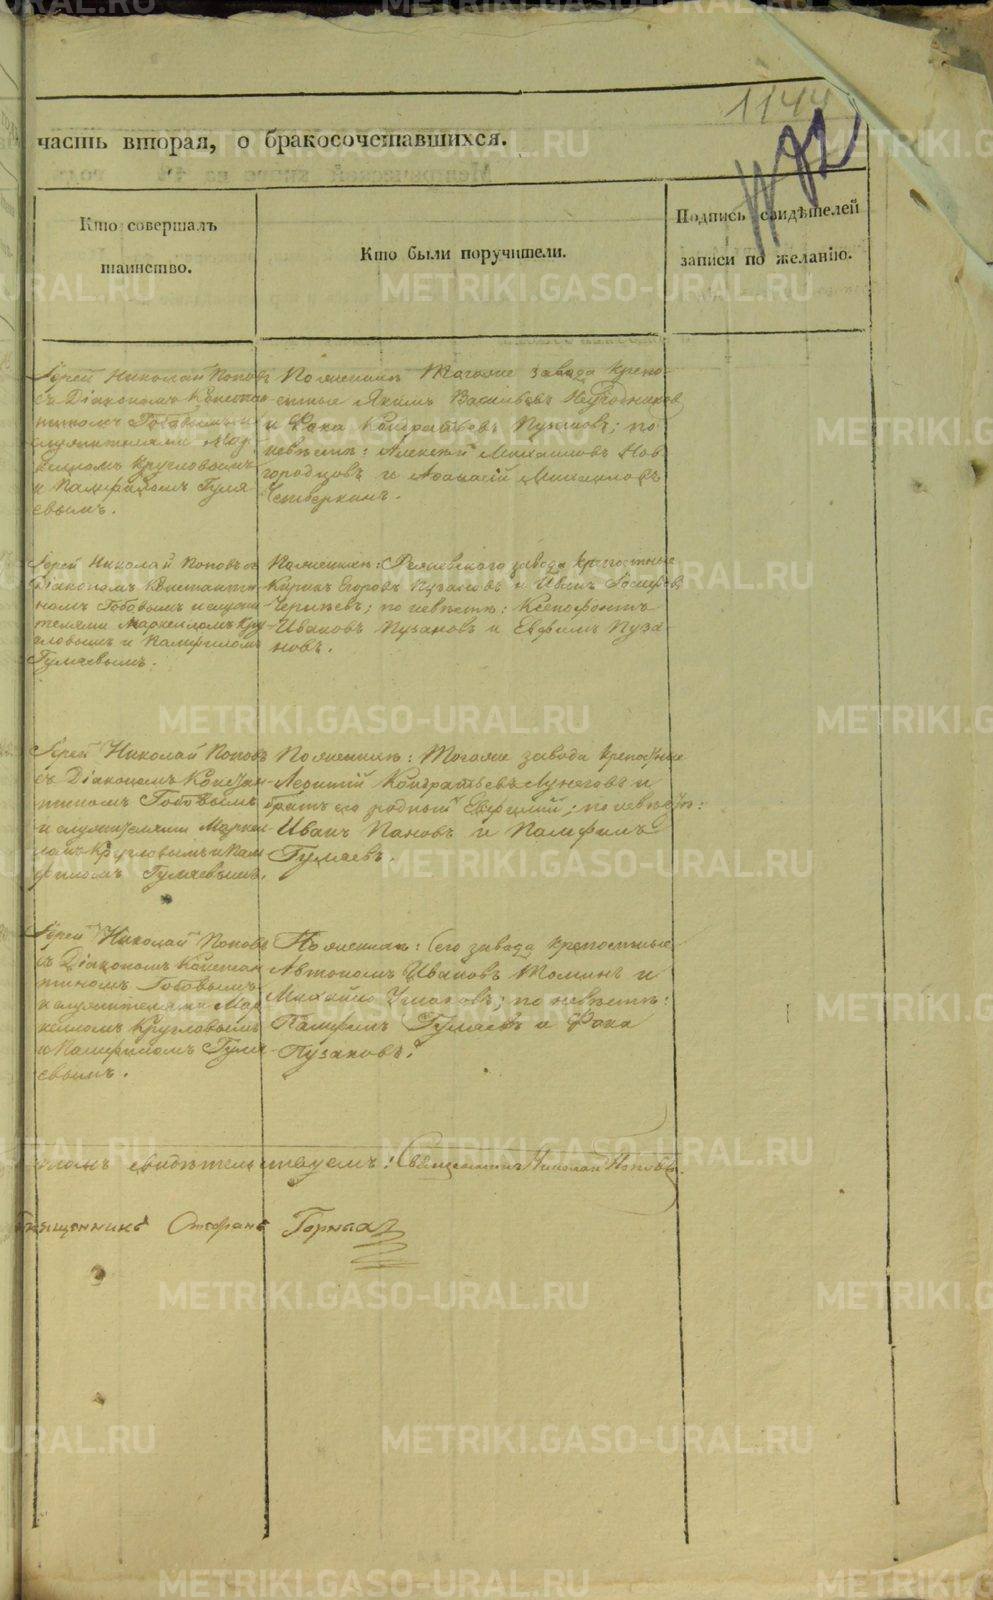 1144
часть вторая, о бракосочетавшихся.
Кто совершалъ
таинство.
Кто были поручители.
Подпись свидѣтелей
записи по желанію.
Іерей Николай Поповъ
съ Діакономъ Констан
тиномъ Гобовымъ и
служителями Мар
келломъ Кругловымъ
и Памфиломъ Гуля
евымъ.
По женихѣ Тогоже завода крепо-
стные Якимъ Васильевъ
и Фока Кондратьевъ Пузановъ; по
невѣстѣ: Алексѣй Михайловъ Нов
городцовъ и Афанасій Михайловъ
Четверкинъ.
Іерей Николай Поповъ съ
Діакономъ Константи
номъ Гобовымъ и служи
телями Маркелломъ Кру
гловымъ и Памфиломъ
Гуляевымъ.
По женихѣ: завода крепостные
Егоровъ Пузановъ и Иванъ
по невѣстѣ: Ксенофонтъ
Ивановъ Пузановъ и Ефимъ Пуза
новъ.
Іерей Николай Поповъ
съ Діакономъ Констан
тиномъ Гобовымъ
и служителями Маркел
ломъ Кругловымъ и Пам
филомъ Гуляевымъ.
По женихѣ: Тогоже завода крепостные
Леонтій Кондратьевъ Лунеговъ и
братъ его родный Евфимій; по невѣстѣ:
Иванъ Пановъ и Памфилъ
Гуляевъ.
Іерей Николай Поповъ
съ Діакономъ Констан
тиномъ Гобовымъ
и служителями Мар
келломъ Кругловымъ
и Памфиломъ Гуля
евымъ.
По женихѣ: Сего завода крепостные
Автономъ Ивановъ Томинъ и
Михайло Ушаковъ; по невѣстѣ:
Памфилъ Гуляевъ и Фока
Пузановъ.
свидѣтельствуемъ: Священникъ Николай Поповъ.
Священникъ Стефанъ
METRIKI.GASO-URAL.RU